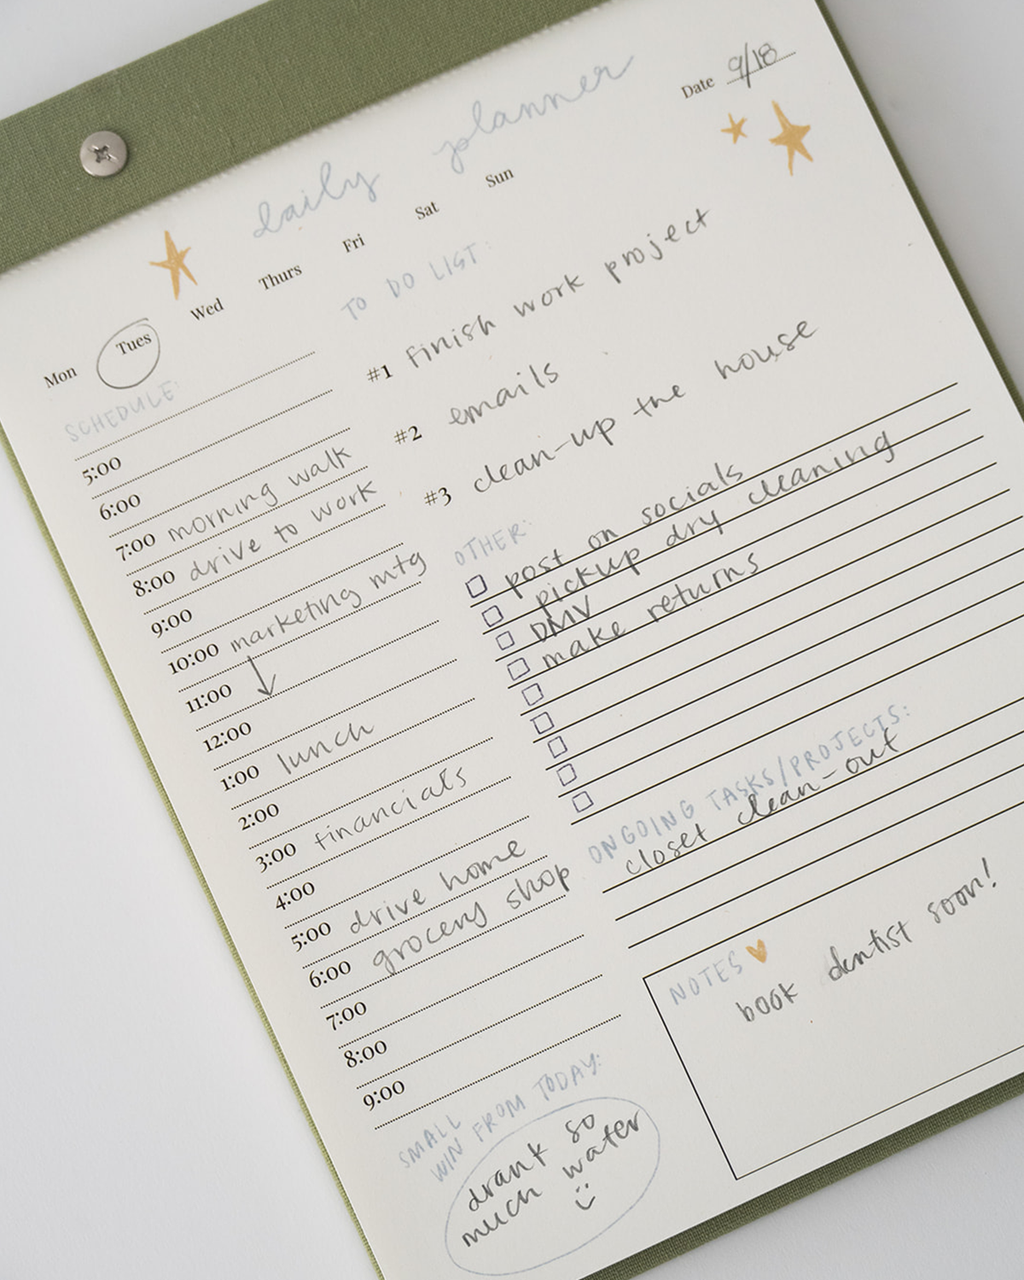 daily planner
Date 9/18
Mon Tues Wed Thurs Fri Sat Sun
SCHEDULE:
5:00
6:00
7:00 morning walk
8:00 drive to work
9:00
10:00 marketing mtg
11:00
12:00
1:00 lunch
2:00
3:00 financials
4:00
5:00 drive home
6:00 grocery shop
7:00
8:00
9:00
SMALL
WIN FROM TODAY:
drank so
much water
TO DO LIST:
#1 finish work project
#2 emails
#3 clean-up the house
OTHER:
post on socials
pickup dry cleaning
DMV
make returns
ONGOING TASKS/PROJECTS:
closet clean-out
NOTES
book dentist soon!